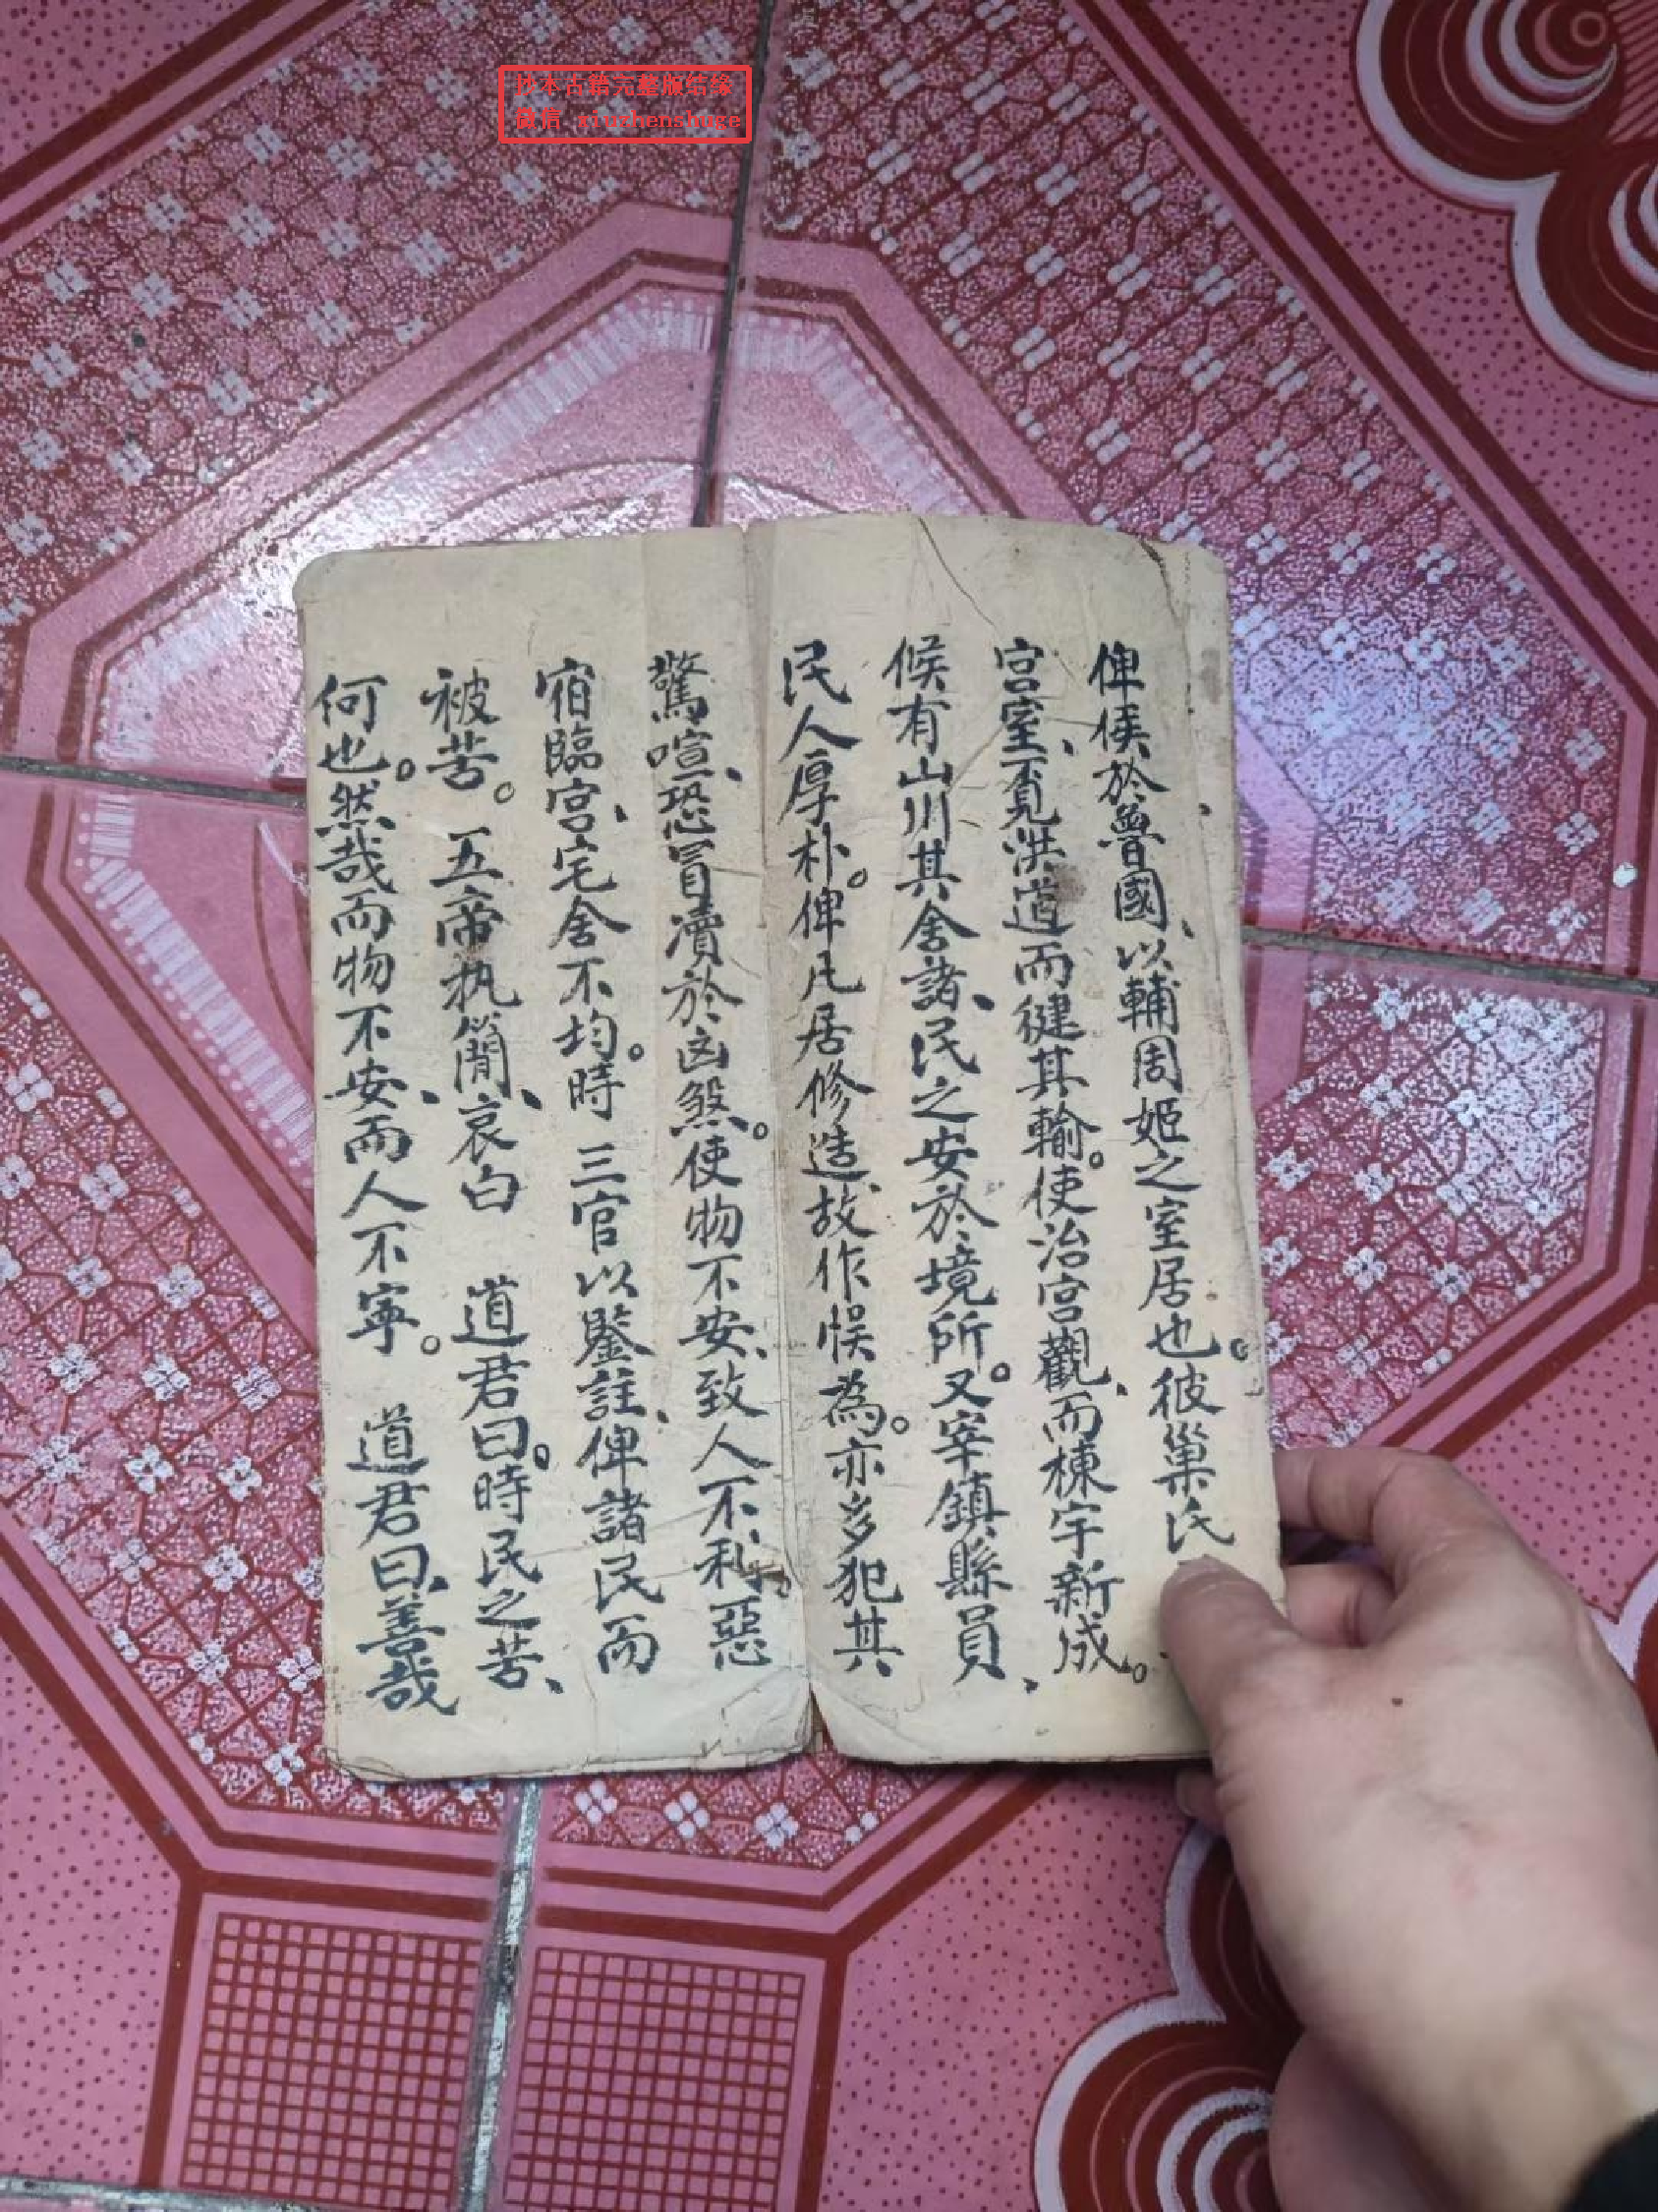 抄本古籍完整版结缘
微信 xiuzhenshuge
俾侯於魯國、以輔周姬之室居也。彼巢氏
宫室、覔洪道而健其輸。使治宫觀、而棟宇新成。
候有山川其舍諸、民之安於境所。又宰鎮縣員、
民人厚朴。俾凡居修造、故作悮為。亦多犯其
驚喧、恐冒瀆於凶煞。使物不安、致人不利。惡
宿臨宫、宅舍不均。時 三官以鑒註、俾諸民而
被苦。五帝执簡、哀白 道君曰。時民之苦、
何也。然哉而物不安、而人不寜。 道君曰、善哉